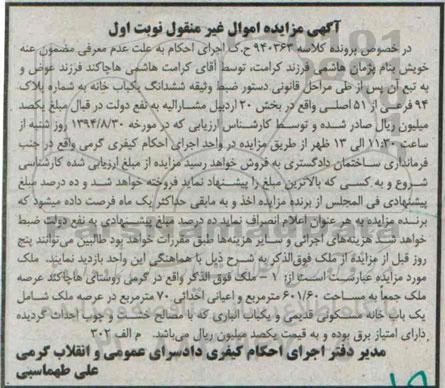 آگهی مزایده اموال غیر منقول نوبت اول
در خصوص پرونده کلاسه ۹۴۰۳۶۳ ح.ک اجرای احکام به علت عدم معرفی مضمون عنه
خویش بنام پژمان هاشمی فرزند کرامت، توسط آقای کرامت هاشمی هاچاکند فرزند عوض و
به تبع آن پس از طی مراحل قانونی دستور ضبط وثیقه ششدانگ یکباب خانه به شماره پلاک
۹۴ فرعی از ۵۱ اصلی واقع در بخش ۲۰ اردبیل مشارالیه به نفع دولت در قبال مبلغ یکصد
میلیون ریال صادر شده و توسط کارشناس ارزیابی که در مورخه ۱۳۹۴/۸/۳۰ روز شنبه از
ساعت ۱۱:۳۰ الی ۱۳ ظهر از طریق مزایده در واحد اجرای احکام کیفری گرمی واقع در جنب
فرمانداری ساختمان دادگستری به فروش خواهد رسید مزایده از مبلغ ارزیابی شده کارشناسی
شروع و به کسی که بالاترین مبلغ را پیشنهاد نماید فروخته خواهد شد و ده درصد مبلغ
پیشنهادی فی المجلس از برنده مزایده اخذ و به مابقی حداکثر یک ماه فرصت داده میشود که
برنده مزایده به هر عنوان اعلام انصراف نماید ده درصد مبلغ پیشنهادی به نفع دولت ضبط
خواهد شد هزینه‌های اجرائی و سایر هزینه‌ها طبق مقررات خواهد بود طالبین می‌توانند پنج
روز قبل از مزایده از ملک فوق‌الذکر به شرح ذیل با هماهنگی این واحد بازدید نمایند. ملک
مورد مزایده عبارتست است از: ۱ – ملک فوق الذکر واقع در گرمی روستای هاچاکند عرصه
ملک جمعا به مساحت ۶۰۱/۶۰ مترمربع و اعیانی احداثی ۷۰ مترمربع در عرصه ملک شامل
یک باب خانه مسکونی قدیمی و یکباب انباری که با مصالح خشت و چوب احداث گردیده
دارای امتیاز برق بوده و به قیمت یکصد میلیون ریال می‌باشد. م الف ۳۰۲
مدیر دفتر اجرای احکام کیفری دادسرای عمومی و انقلاب گرمی
علی طهماسبی